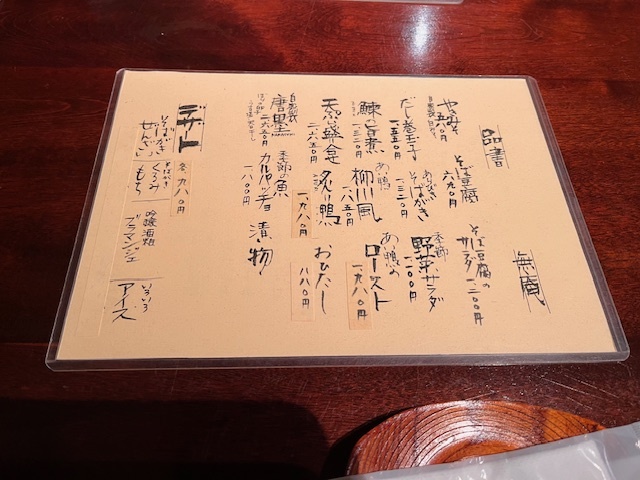 無庵
品書
やきみそ
自家製
そば豆腐
六九〇円
そば豆腐の
サラダ
一二〇〇円
だし巻玉子
一五五〇円
そばがき
一三二〇円
季節
野菜サラダ
一一〇〇円
鰊の旨煮
一三二〇円
あい鴨
柳川風
一八五〇円
あい鴨の
ロースト
一九八〇円
天ぷら盛合
二六五〇円
炙り鴨
一九八〇円
おひたし
八八〇円
自家製
唐墨
二六五〇円
季節の魚
カルパッチョ
一八〇〇円
漬物
デザート
各、九八〇円
そばがき
ぜんざい
そばがき
くるみ
もち
吟醸酒粕
ブラマンジェ
いろいろ
アイス